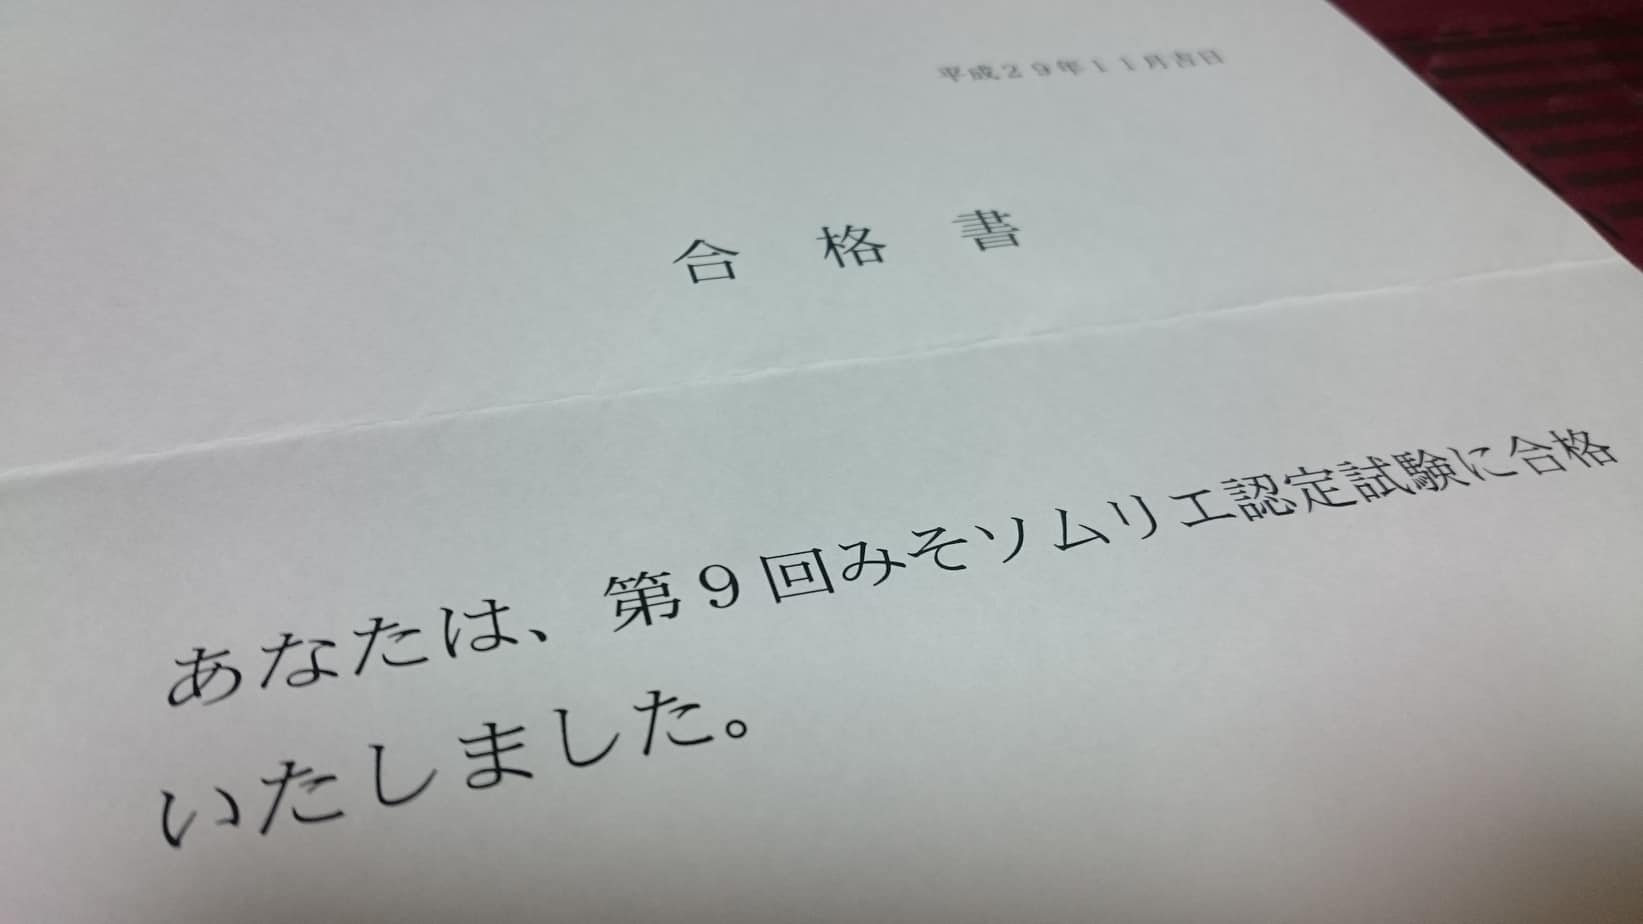 平成２９年１１月吉日
合格書
あなたは、第９回みそソムリエ認定試験に合格
いたしました。